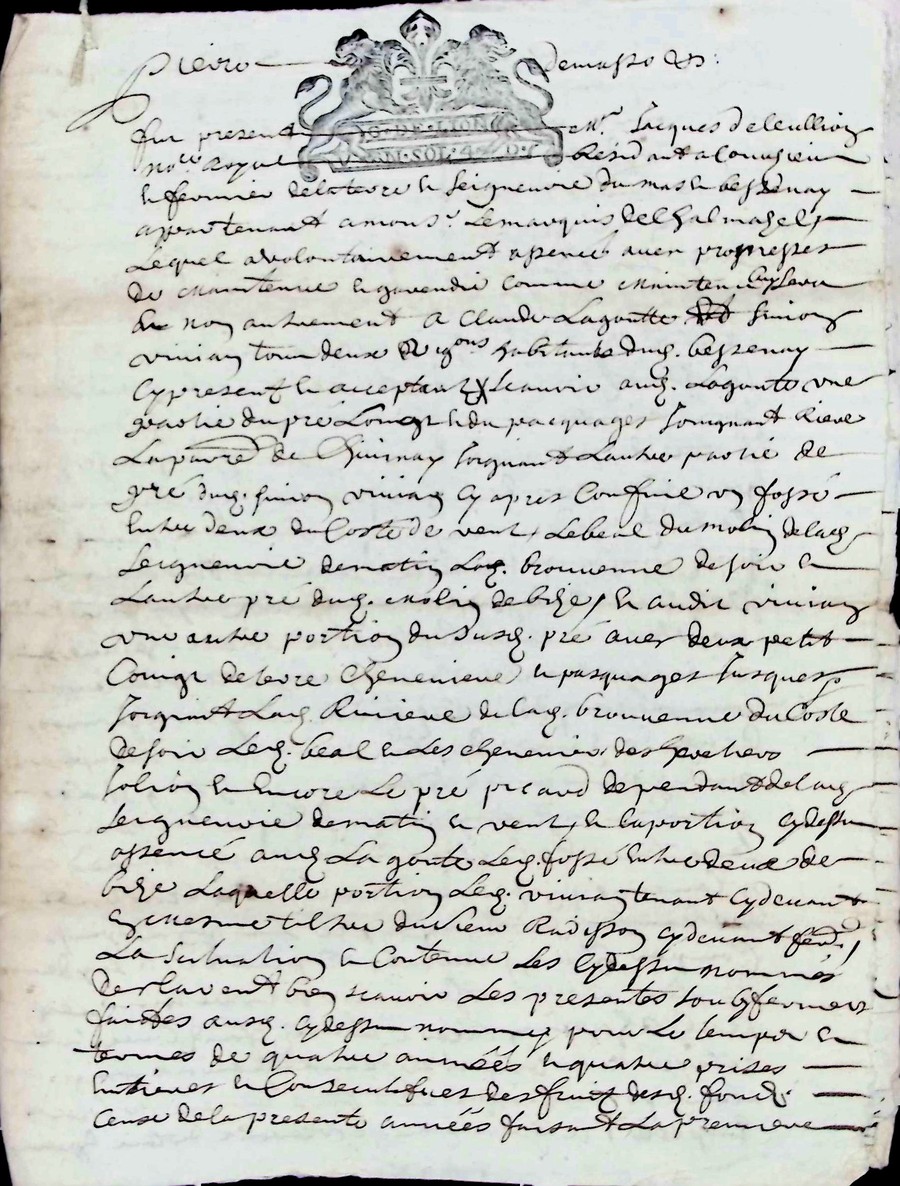 Pierre demasso &s:
G. DE LION
UN SOL 4 D.
fut present Mr. Jacques deleullion
no.re Royal Residant a Courzieu
le fermier delaterre et seigneurie dumas et bessenay
appartenant a mons.r Lemarquis de Chalmazel
Lequel avolontairement assencé avec promesses
de maintenue et garendie comme maintenir
non autrement a Claude Lagoutte et simon
vivian tous deux habitants dud. bessenay
cy present et acceptant scavoir aud. Lagoute une
partie du pré Long et du pacquages joignant
La pavre de joignant Lautre partie de
pré dud. simon vivian cy apres Confiné un fossé
entre deux du Costé de vent, Lebeal du molin de lad.
seigneurie dematin Lad. brouvenne desoir et
Lautre pré dud. molin debize, et audit vivian
une autre portion du susd. pré avec deux petit
Coings de terre cheneviere et pasquages jusques
joignant Lad. Riviere de lad. brouvenne du Coste
desoir Led. beal et Les chenevier des
et Encore Le pré picard dependant de lad.
seigneurie dematin et vent, et la portion cydessus
assencé aud. Lagoute Led. fossé entre deux de
bize Laquelle portion Led. vivian tenant cydevant
a mesme tiltre du sieur Radisson cydevant
La scituation et Contenue Les cydessus nommés
declarent bien scavoir Les presentes soubsfermes
faittes ausd. cydessus nommez pour Le temps et
termes de quatre années et quatre prises
entieres et Consecutifves des fruit desd. fonds
Cense de la presente années faisant La premiere